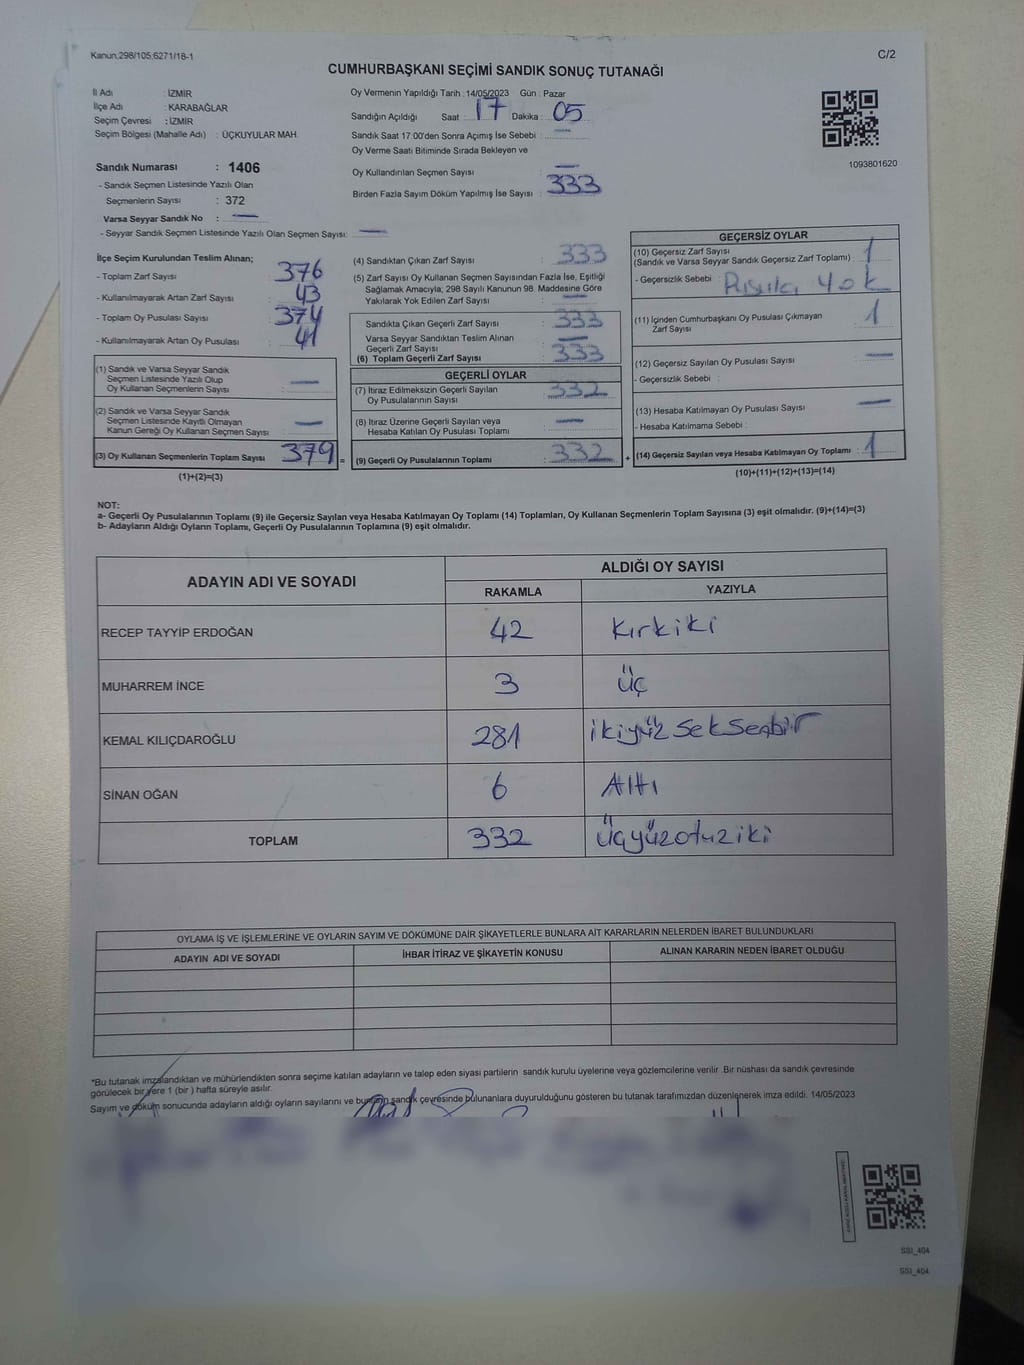 Kanun,298/105;6271/18-1
C/2
CUMHURBAŞKANI SEÇİMİ SANDIK SONUÇ TUTANAĞI
İl Adı : İZMİR
İlçe Adı : KARABAĞLAR
Seçim Çevresi : İZMİR
Seçim Bölgesi (Mahalle Adı) : ÜÇKUYULAR MAH.
Sandık Numarası : 1406
- Sandık Seçmen Listesinde Yazılı Olan
Seçmenlerin Sayısı : 372
Varsa Seyyar Sandık No : —
- Seyyar Sandık Seçmen Listesinde Yazılı Olan Seçmen Sayısı: —
Oy Vermenin Yapıldığı Tarih : 14/05/2023 Gün : Pazar
Sandığın Açıldığı Saat : 17 Dakika : 05
Sandık Saat 17:00'den Sonra Açımış İse Sebebi : —
Oy Verme Saati Bitiminde Sırada Bekleyen ve
Oy Kullandırılan Seçmen Sayısı : —
Birden Fazla Sayım Döküm Yapılmış İse Sayısı : 333
1093801620
İlçe Seçim Kurulundan Teslim Alınan;
- Toplam Zarf Sayısı : 376
- Kullanılmayarak Artan Zarf Sayısı : 43
- Toplam Oy Pusulası Sayısı : 374
- Kullanılmayarak Artan Oy Pusulası : 41
(1) Sandık ve Varsa Seyyar Sandık
Seçmen Listesinde Yazılı Olup
Oy Kullanan Seçmenlerin Sayısı : —
(2) Sandık ve Varsa Seyyar Sandık
Seçmen Listesinde Kayıtlı Olmayan
Kanun Gereği Oy Kullanan Seçmen Sayısı : —
(3) Oy Kullanan Seçmenlerin Toplam Sayısı : 379 =
(1)+(2)=(3)
(4) Sandıktan Çıkan Zarf Sayısı : 333
(5) Zarf Sayısı Oy Kullanan Seçmen Sayısından Fazla İse, Eşitliği
Sağlamak Amacıyla; 298 Sayılı Kanunun 98. Maddesine Göre
Yakılarak Yok Edilen Zarf Sayısı : —
Sandıkta Çıkan Geçerli Zarf Sayısı : 333
Varsa Seyyar Sandıktan Teslim Alınan
Geçerli Zarf Sayısı : —
(6) Toplam Geçerli Zarf Sayısı : 333
GEÇERLİ OYLAR
(7) İtiraz Edilmeksizin Geçerli Sayılan
Oy Pusulalarının Sayısı : 332
(8) İtiraz Üzerine Geçerli Sayılan veya
Hesaba Katılan Oy Pusulası Toplamı : —
(9) Geçerli Oy Pusulalarının Toplamı : 332 +
GEÇERSİZ OYLAR
(10) Geçersiz Zarf Sayısı
(Sandık ve Varsa Seyyar Sandık Geçersiz Zarf Toplamı) : 1
- Geçersizlik Sebebi : Pusula yok
(11) İçinden Cumhurbaşkanı Oy Pusulası Çıkmayan
Zarf Sayısı : 1
(12) Geçersiz Sayılan Oy Pusulası Sayısı : —
- Geçersizlik Sebebi :
(13) Hesaba Katılmayan Oy Pusulası Sayısı : —
- Hesaba Katılmama Sebebi :
(14) Geçersiz Sayılan veya Hesaba Katılmayan Oy Toplamı : 1
(10)+(11)+(12)+(13)=(14)
NOT:
a- Geçerli Oy Pusulalarının Toplamı (9) ile Geçersiz Sayılan veya Hesaba Katılmayan Oy Toplamı (14) Toplamları, Oy Kullanan Seçmenlerin Toplam Sayısına (3) eşit olmalıdır. (9)+(14)=(3)
b- Adayların Aldığı Oyların Toplamı, Geçerli Oy Pusulalarının Toplamına (9) eşit olmalıdır.
ADAYIN ADI VE SOYADI
ALDIĞI OY SAYISI
RAKAMLA YAZIYLA
RECEP TAYYİP ERDOĞAN 42 Kırkiki
MUHARREM İNCE 3 üç
KEMAL KILIÇDAROĞLU 281 ikiyüz seksenbir
SİNAN OĞAN 6 Altı
TOPLAM 332 Üçyüzotuziki
OYLAMA İŞ VE İŞLEMLERİNE VE OYLARIN SAYIM VE DÖKÜMÜNE DAİR ŞİKAYETLERLE BUNLARA AİT KARARLARIN NELERDEN İBARET BULUNDUKLARI
ADAYIN ADI VE SOYADI İHBAR İTİRAZ VE ŞİKAYETİN KONUSU ALINAN KARARIN NEDEN İBARET OLDUĞU
*Bu tutanak imzalandıktan ve mühürlendikten sonra seçime katılan adayların ve talep eden siyasi partilerin sandık kurulu üyelerine veya gözlemcilerine verilir .Bir nüshası da sandık çevresinde
görülecek bir yere 1 (bir ) hafta süreyle asılır.
Sayım ve döküm sonucunda adayların aldığı oyların sayılarını ve bunların sandık çevresinde bulunanlara duyurulduğunu gösteren bu tutanak tarafımızdan düzenlenerek imza edildi. 14/05/2023
SSI_404
SSI_404